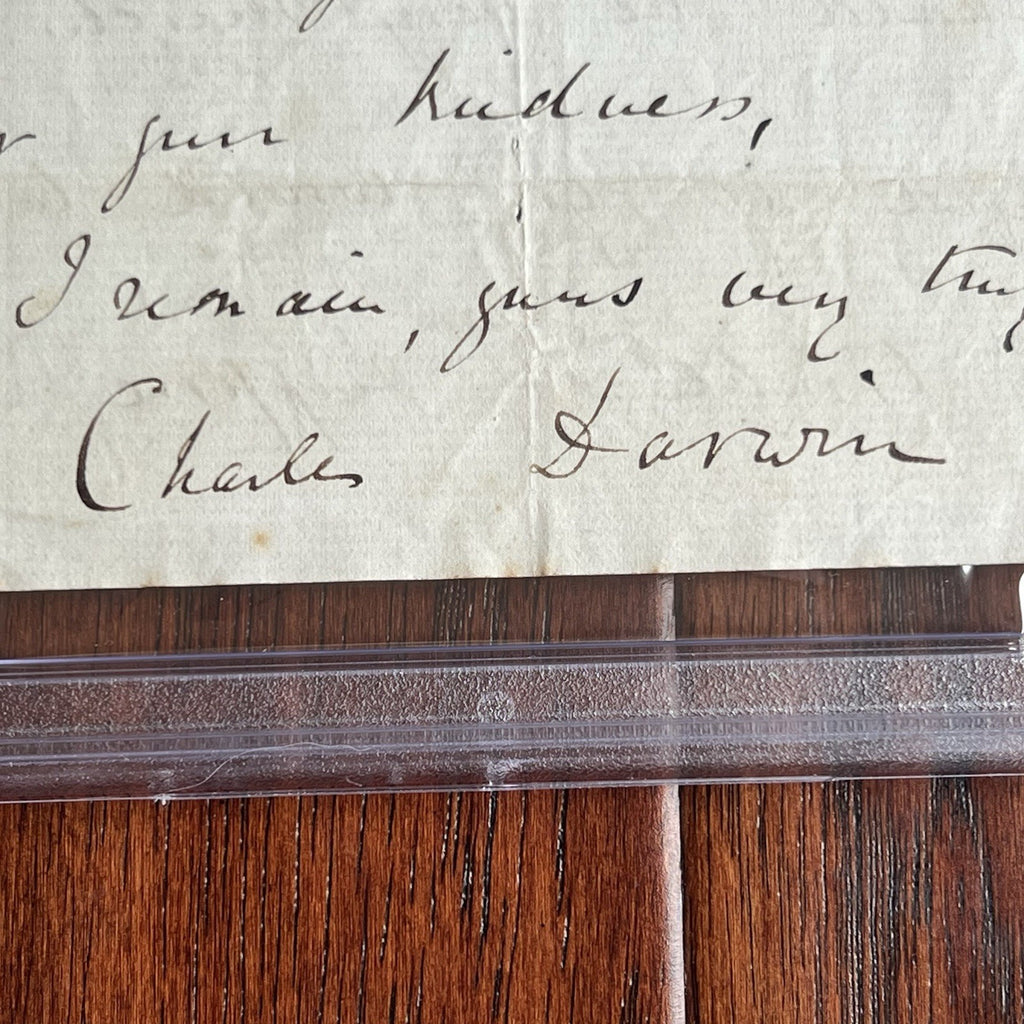 your kindness,
I remain, yours very truly
Charles Darwin